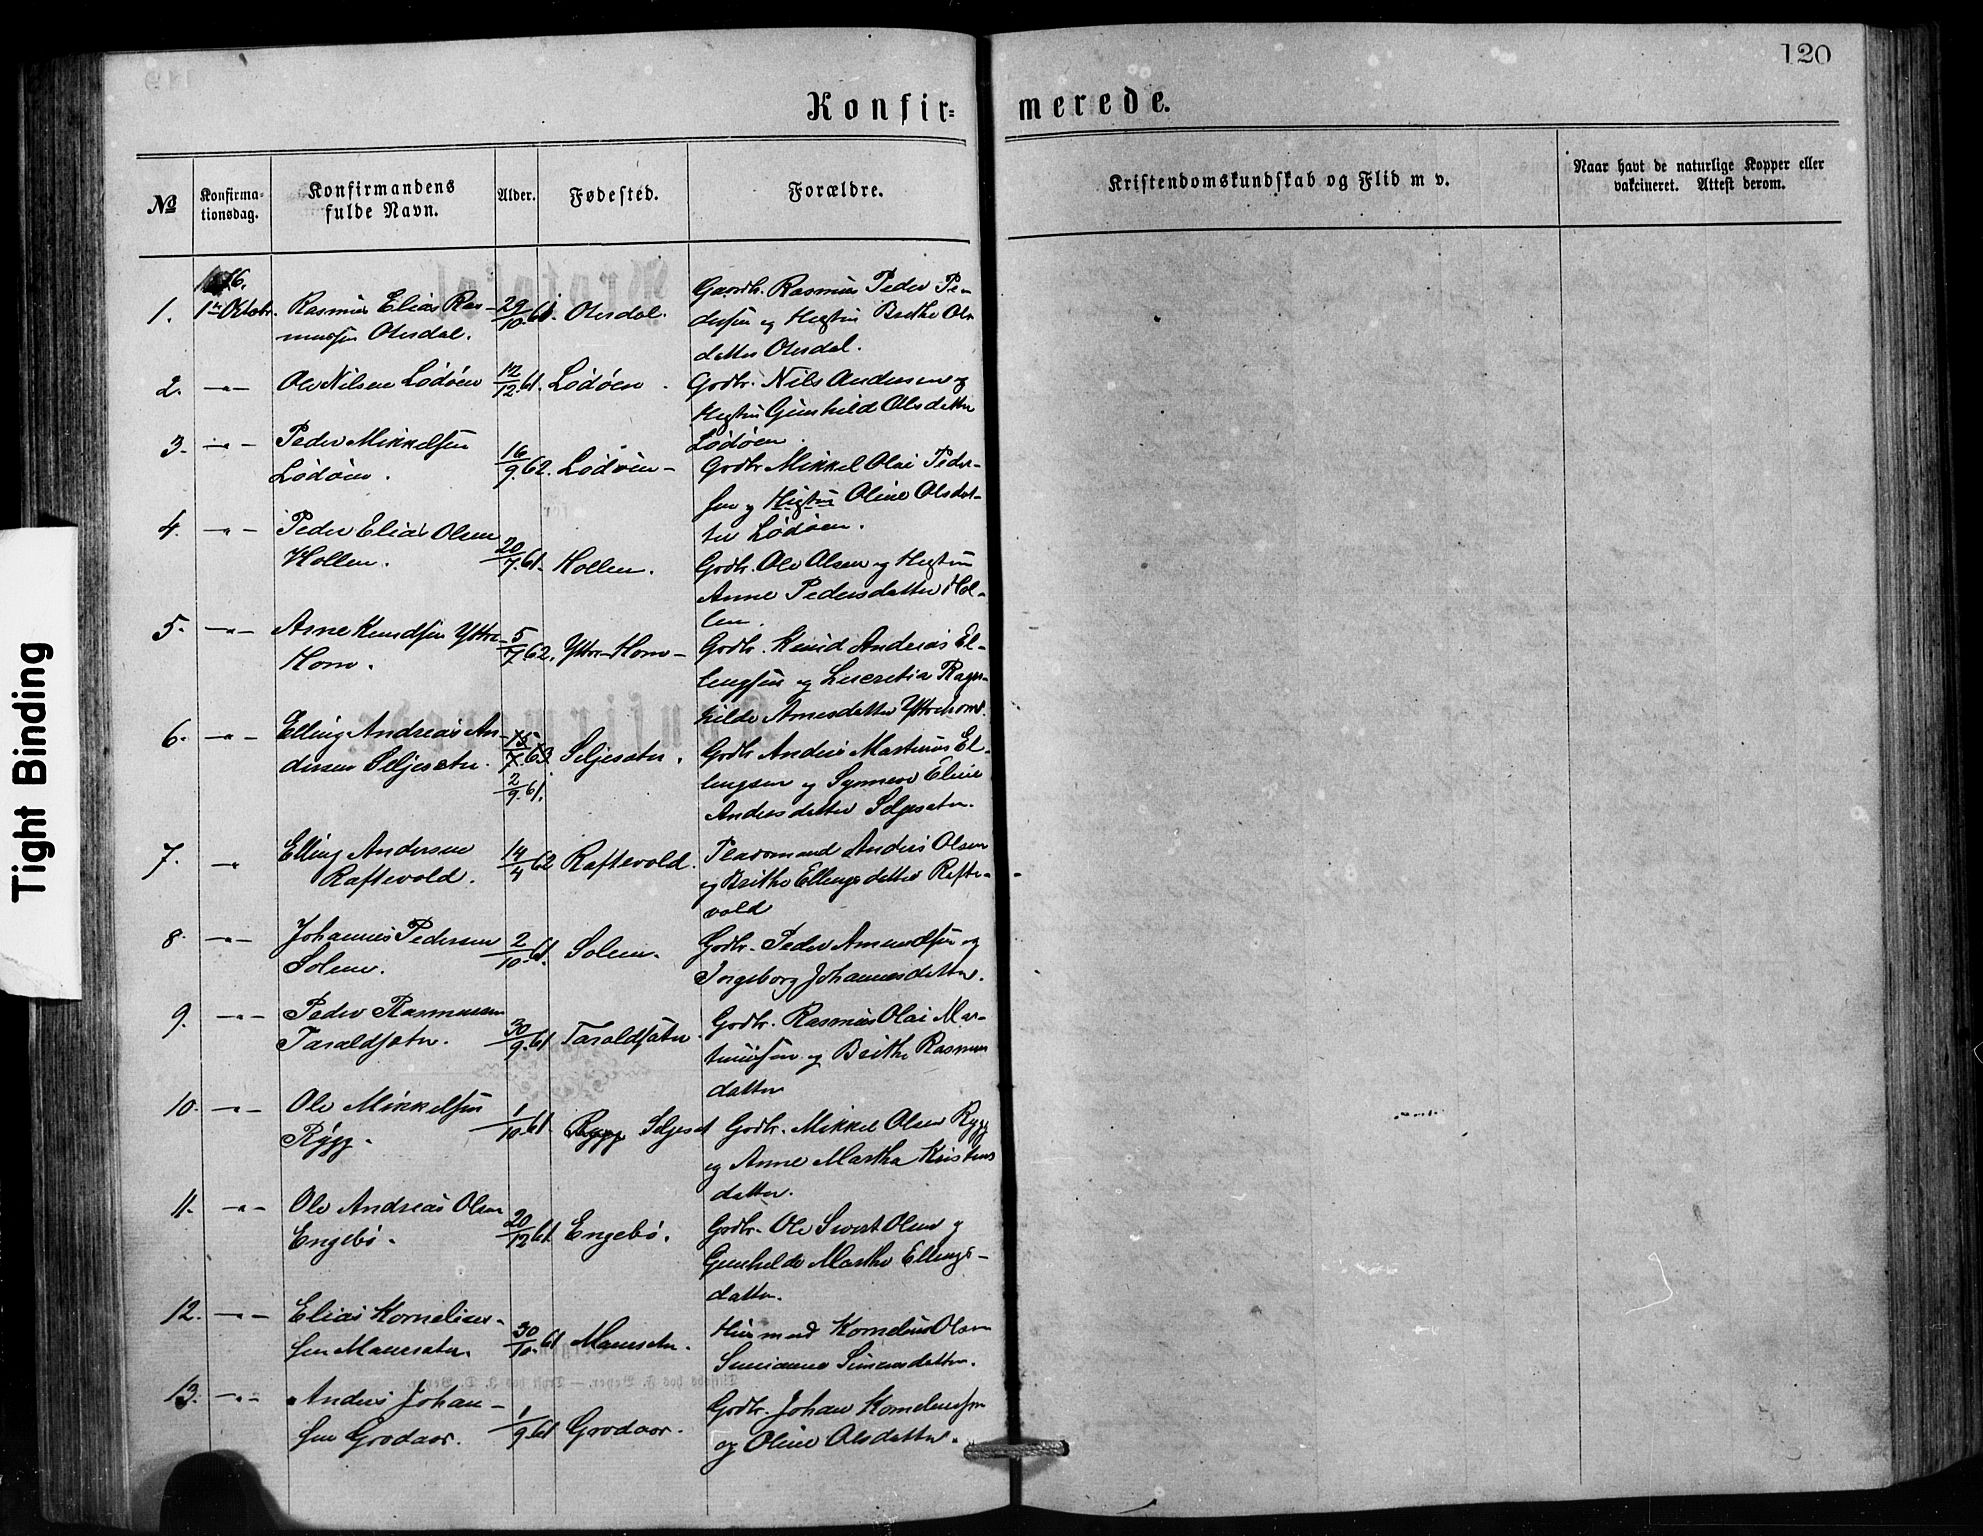 120
Konfir=
merede.
№
Konfirma-
tionsdag.
Konfirmandens
fulde Navn.
Alder.
Fødested.
Forældre.
Kristendomskundskab og Flid m v.
Naar havt de naturlige Kopper eller
vakcineret. Attest derom.
1876.
1. 1ste Oktobr. Rasmus Elias Ras- 29/10 61. Otesdal. Gaardbr. Rasmus Peder Pe-
mussen Otesdal. dersen og Hustru Brithe Ols
datter Otesdal.
2. -"- Ole Nilsen Lødøen 12/12 61. Lødøen. Grdbr. Nils Andersen og
Gunhild Olsdatter
Lødøen.
3. -"- Peder Mikkelsen
Lødøen. 16/9 62. Lødøen - Grdbr Mikkel Olai Peder-
sen og Oline Olsdat-
ter Lødøen.
4. -"- Peder Elias Olsen
Hollen. 20/7 61. Hollen. Grdbr. Ole Olsen og
Anne Pedersdatter Hol-
len.
5. -"- Arne Knudsen Yttre- 5/7 62. Yttre-Horn -
Horn. Grdbr. Knud Andreas El-
lingsen og Lucretia Ragn-
hilde Arnesdatter Yttrehorn.
6. -"- Elling Andreas An-
dersen Seljesæter. 63 Seljesæter.
2/9 61. Grdbr Anders Martinus El-
lingsen og Synneve Eline
Andersdatter Seljesæter.
7. " Elling Andersen
Raftevold. 14/4 62 Raftevold. Anders Olsen
og Brithe Ellingsdatter Rafte-
vold
8. -"- Johannes Pedersen
Solem. 2/10 61. Solem. Grdbr. Peder Amundsen og
Ingeborg Johannesdatter.
9. -"- Peder Rasmussen
Taraldsæter. 30/9 61 Taraldsæter. Grdbr. Rasmus Olai Mar-
tinussen og Brithe Rasmus
datter
10. -"- Ole Mikkelsen
Rygg. 1/10 61 Rygg Seljeset Grdbr. Mikkel Olsen Rygg
og Anne Martha Kristens
datter.
11. -"- Ole Andreas Olsen
Engebø. 20/12 61 Engebø. Grdbr. Ole Sivert Olsen og
Gunhilde Marthe Ellings-
datter.
12. -"- Elias Kornelius-
sen Maurseter. 30/10 61 Maurseter. Husmand Kornelius Olsen
Simensdatter.
13. -"- Anders Johan-
sen Grodaas. 1/9 61 Grodaas. Grdbr. Johan Korneliussen
og Oline Olsdatter.
Tight Binding